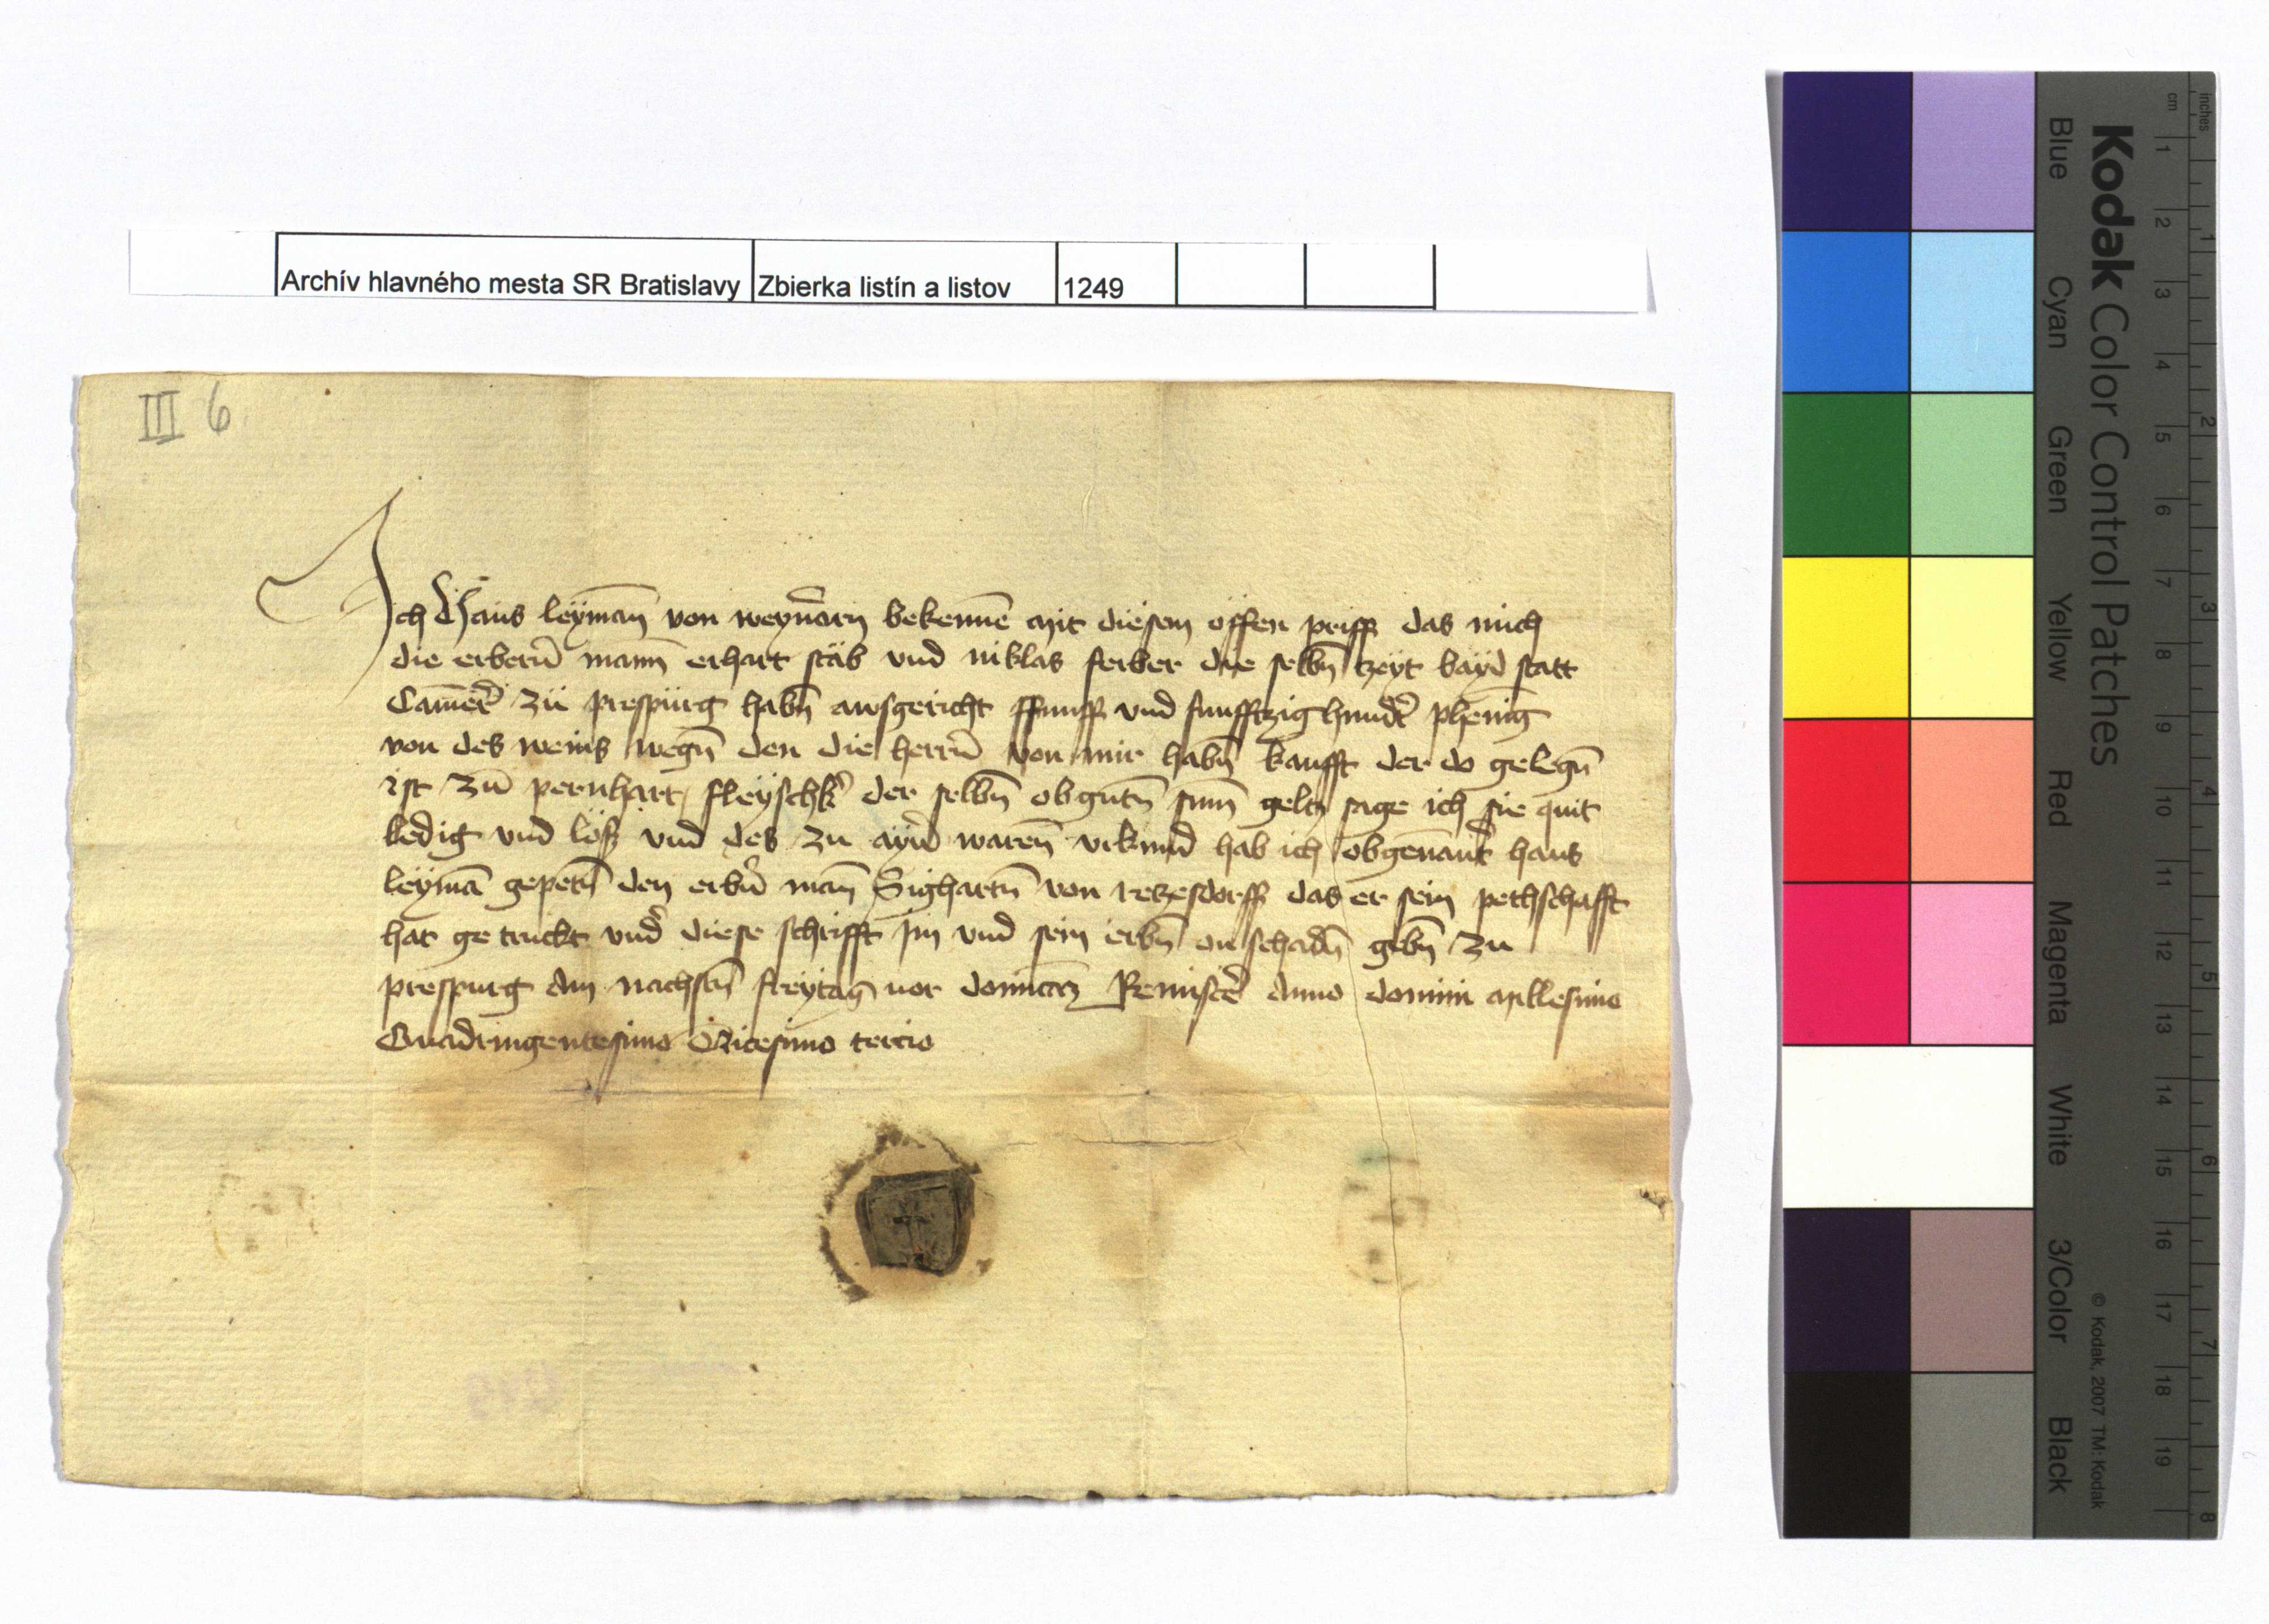 Archív hlavného mesta SR Bratislavy Zbierka listín a listov 1249
III 6
Ich Hans leyman̄ von bekenne mit diesem offen priff das mich
die erberñ mann erhart stäb vnd niklas ferber die selbñ tzeyt bayd statt
Camer̄ zü prespürg habñ awsgericht ffunff vnd funfftzig hundt̄ pheniḡ
von des weins wegñ den die herrñ von mir habñ kaufft der do gelegñ
ist zü pernhart fleyschk̄ der selbñ obgntñ sum̄ geltz sage ich sie quit
ledig vnd loß vnd des zu ayn̄ waren̄ vrkund hab ich obgenant̄ hans
leymā gepetñ den erbñ man̄ Sighartñ von retzesdorff das er sein pethschafft
hat getruckt vnd̄ diese schrifft Im vnd sein erbñ on schadñ gebñ zu
prespurg Am nachstñ freytag vor Reminisc̄e Anno domini Millesimo
Quadringentesimo Tricesimo tercio
Kodak Color Control Patches
Blue Cyan Green Yellow Red Magenta White 3/Color Black
© Kodak, 2007 TM: Kodak
inches 1 2 3 4 5 6 7 8
cm 1 2 3 4 5 6 7 8 9 10 11 12 13 14 15 16 17 18 19